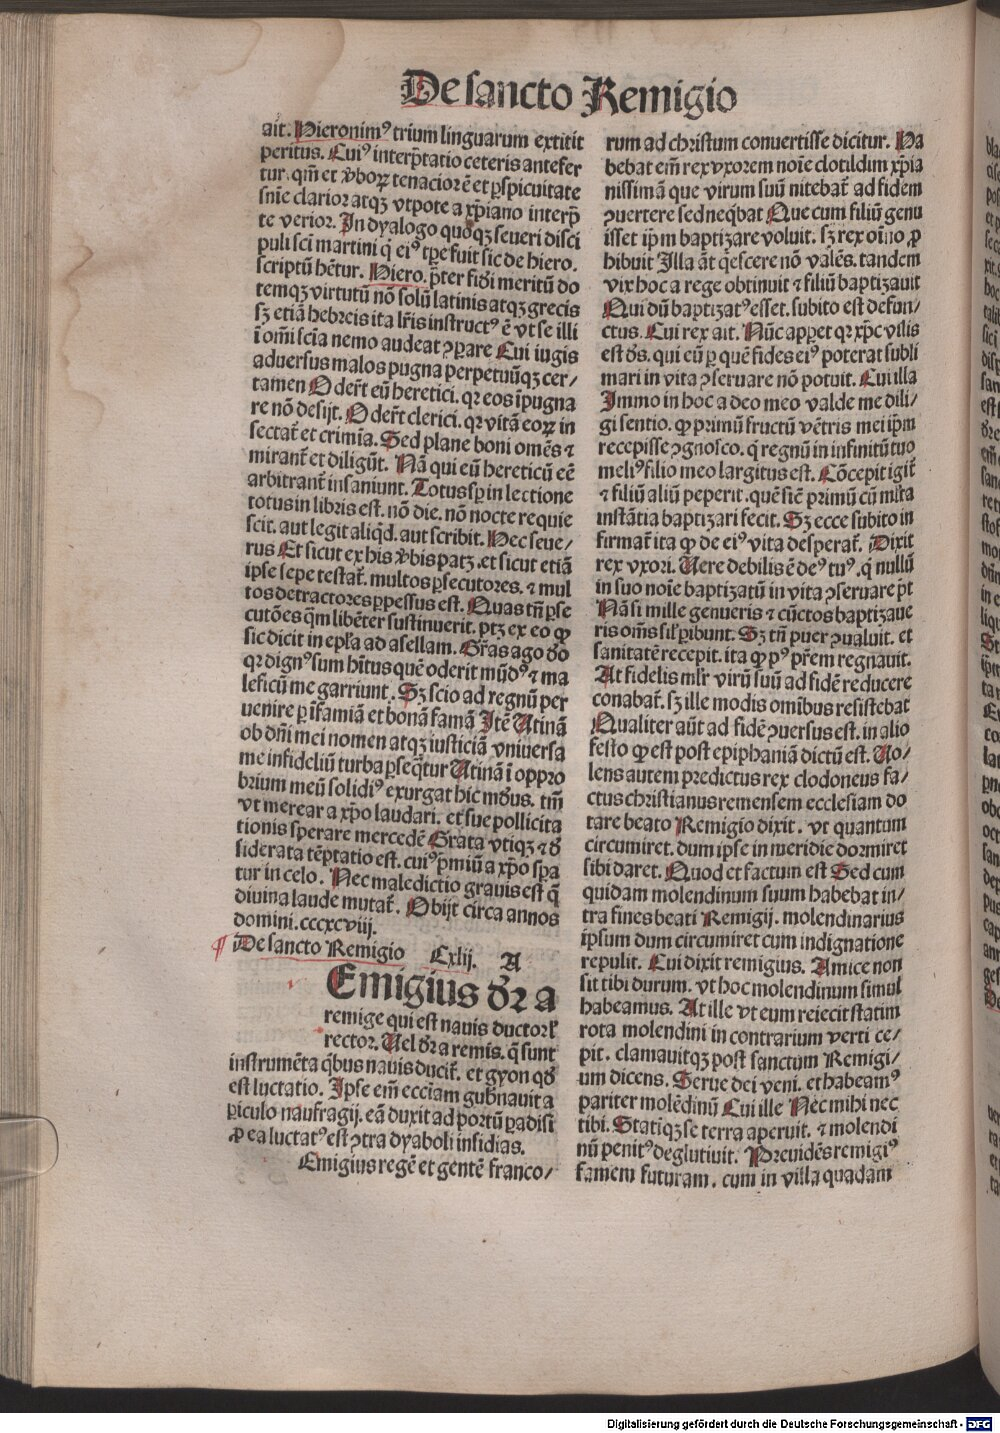 De sancto Remigio
ait. Hieronimꝰ trium linguarum extitit
peritus. Cuiꝰ interp̄tatio ceteris antefer
tur. qm̄ et v̓boꝝ tenacior ē et ꝑspicuitate
snīe clarior atqꝫ vtpote a xp̄iano interp̄
te verior. In dyalogo quoqꝫ seueri disci
puli sci martini q̄ eiꝰ tp̄e fuit sic de hiero.
scriptū hēt̄ur. Hiero. p̄ter fidi meritū do
temqꝫ virtutū nō solū latinis atqꝫ grecis
sꝫ etiā hebreis ita lr̄is instructꝰ ē vt se illi
ī om̄i scīa nemo audeat ꝯꝑare Cui iugis
aduersus malos pugna perpetuūqꝫ cer/
tamen Oder̄t eū heretici. qꝛ eos īpugna
re nō desijt. Oder̄t clerici. qꝛ vitā eoꝝ in
sectat̄ et crimīa. Sed plane boni omēs ⁊
mirant̄ et diligūt. Nā qui eū hereticū eē
arbitrant̄ insaniunt. Totus sp̄ in lectione
totus in libris est. nō die. nō nocte requie
scit. aut legit aliqd̓. aut scribit. Hec seue/
rus Et sicut ex his v̓bis patꝫ. et sicut etiā
ipse sepe testat̄. multos ꝑsecutores. ⁊ mul
tos detractores ꝑpessus est. Quas tn̄ ꝑse
cutōes q̄m libēter sustinuerit. ptꝫ ex eo ꝙ
sic dicit in epl̄a ad asellam. Gr̄as ago deo
qꝛ dignꝰ sum hītus quē oderit mūdꝰ ⁊ ma
leficū me garriunt. Sꝫ scio ad regnū per
uenire ꝑ īfamiā et bonā famā Itē Utinā
ob dn̄i mei nomen atqꝫ iusticiā vniuersa
me infideliū turba ꝑseq̄tur Utinā ī oppro
brium meū solidiꝰ exurgat hic mūdus. tm̄
vt merear a xp̄o laudari. et sue pollicita
tionis sperare mercedē Grata vtiqꝫ ⁊ de
siderata tēptatio est. cuiꝰ p̄miū a xp̄o spa
tur in celo. Nec maledictio grauis est q̄
diuina laude mutat̄. Obijt circa annos
domini. cccxcviij.
¶ De sancto Remigio Cxlij. A
Emigius dr̄ a
remige qui est nauis ductor ł
rector. Uel dr̄ a remis. q̄ sunt
instrumēta qb̓us nauis ducit̄. et gyon qd̓
est luctatio. Ipse em̄ ecciam gubnauit a
ꝑiculo naufragij. eā duxit ad portū ꝑadisi
ꝓ ea luctatꝰ est ꝯtra dyaboli insidias.
Emigius regē et gentē franco/
rum ad christum conuertisse dicitur. Ha
bebat em̄ rex vxorem noīe clotildim xp̄ia
nissimā que virum suū nitebat̄ ad fidem
ꝯuertere sed neqb̄at Que cum filiū genu
isset ip̄m baptizare voluit. sꝫ rex oīno ꝓ
hibuit Illa āt q̓escere nō valēs. tandem
vix hoc a rege obtinuit ⁊ filiū baptizauit
Qui dū baptizatꝰ esset. subito est defun/
ctus. Cui rex ait. Nūc apꝑet qꝛ xp̄c vilis
est ds̓. qui eū ꝑ quē fides eiꝰ poterat subli
mari in vita ꝯseruare nō potuit. Cui illa
Immo in hoc a deo meo valde me dili/
gi sentio. ꝙ primū fructū vētris mei ip̄m
recepisse ꝯgnosco. q̓ regnū in infinitū tuo
meliꝰ filio meo largitus est. Cōcepit igit̄
⁊ filiū aliū peperit. quē siē primū cū ml̄ta
instātia baptizari fecit. Sꝫ ecce subito in
firmat̄ ita ꝙ de eiꝰ vita desperat̄. Dixit
rex vxori. Uere debilis ē deꝰ tuꝰ. q̓ nullū
in suo noīe baptizatū in vita ꝯseruare pōt
Nā si mille genueris ⁊ cūctos baptizaue
ris oms̄ sil̓ ꝑibunt. Sꝫ tn̄ puer ꝯualuit. et
sanitatē recepit. ita ꝙ pꝰ pr̄em regnauit.
At fidelis ml̓r virū suū ad fidē reducere
conabat̄. sꝫ ille modis omībus resistebat
Qualiter aūt ad fidē ꝯuersus est. in alio
festo ꝙ est post epiphaniā dictū est. Uo/
lens autem predictus rex clodoneus fa/
ctus christianus remensem ecclesiam do
tare beato Remigio dixit. vt quantum
circumiret. dum ipse in meridie dormiret
sibi daret. Quod et factum est Sed cum
quidam molendinum suum habebat in/
tra fines beati Remigij. molendinarius
ipsum dum circumiret cum indignatione
repulit. Cui dixit remigius. Amice non
sit tibi durum. vt hoc molendinum simul
habeamus. At ille vt eum reiecit statim
rota molendini in contrarium verti ce/
pit. clamauitqꝫ post sanctum Remigi/
um dicens. Serue dei veni. et habeamꝰ
pariter molēdinū Cui ille Nec mihi nec
tibi. Statiqꝫ se terra aperuit. ⁊ molendi
nū penitꝰ deglutiuit. Preuidēs remigiꝰ
famem futuram. cum in villa quadam
Digitalisierung gefördert durch die Deutsche Forschungsgemeinschaft - DFG